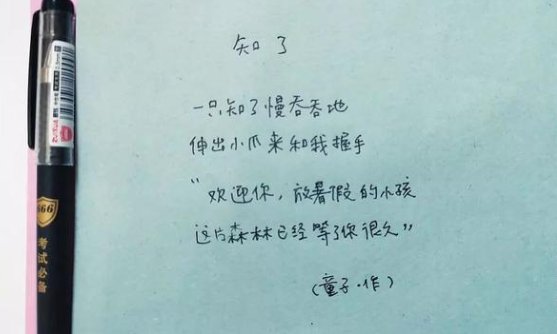 知了
一只知了慢吞吞地
伸出小爪来和我握手
“欢迎你，放暑假的小孩
这片森林已经等了你很久”
（童子·作）
666
考试必备